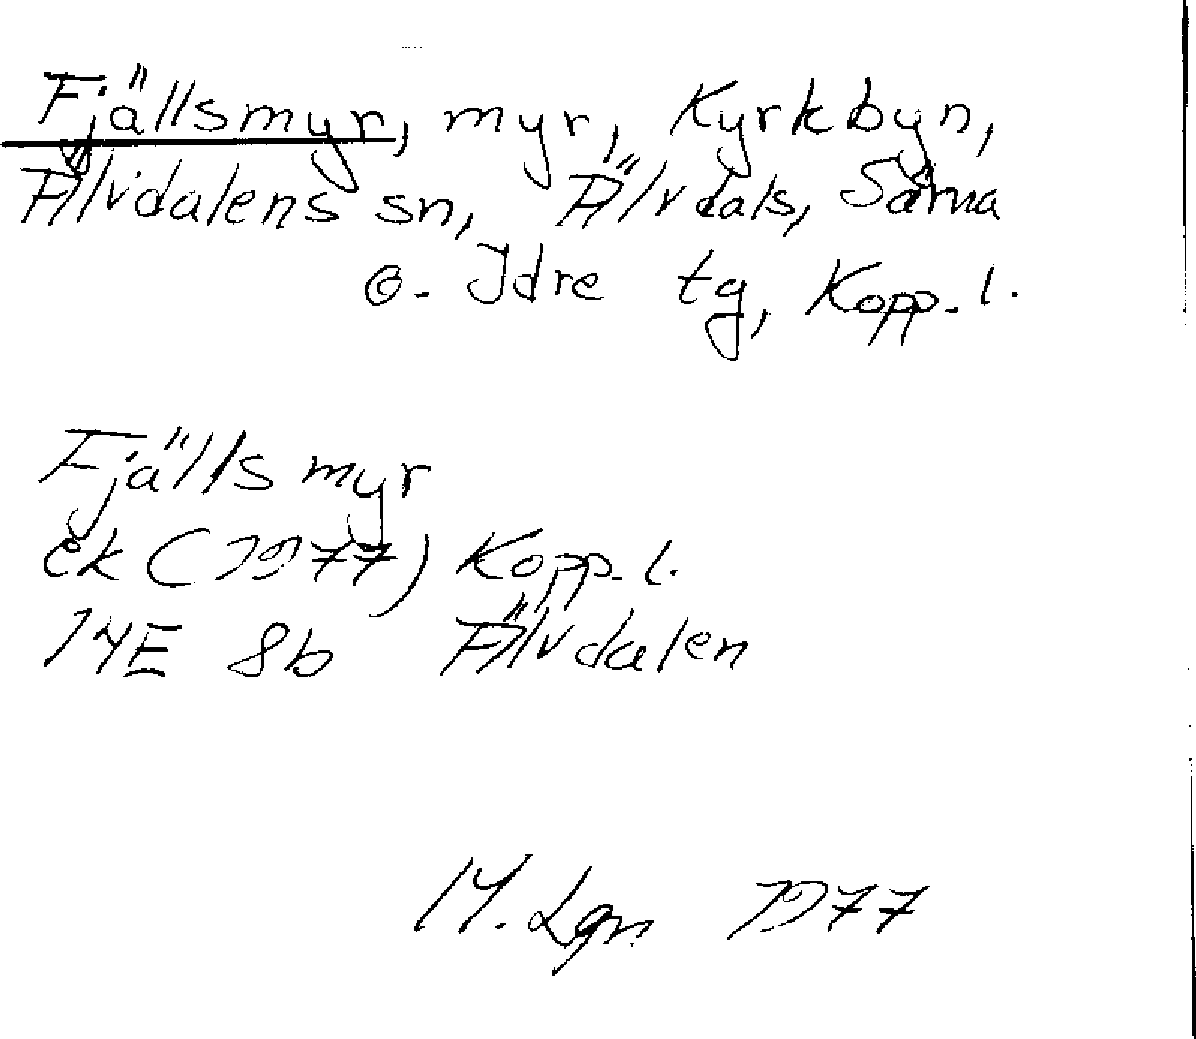 Fjällsmyr, myr, Kyrkbyn,
Älvdalens sn, Älvdals, Särna
o. Idre tg, Kopp. l.
Fjällsmyr
ek (1977) Kopp. l.
14E 8b Älvdalen
Lgn 1977